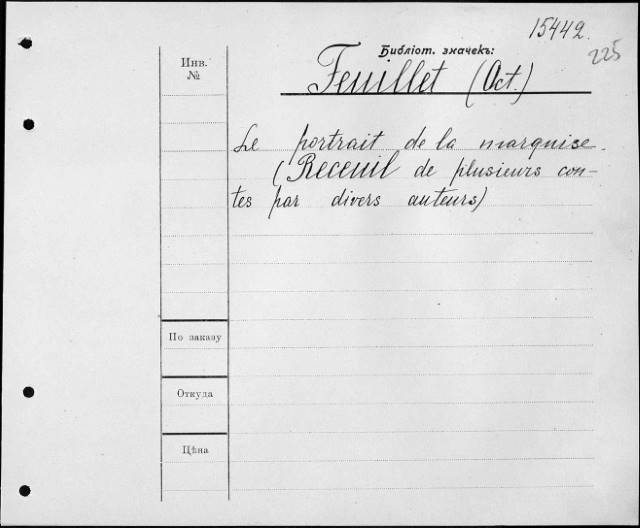 15442.
225
Библіот. значекъ:
Инв.
№
Feuillet (Oct.)
Le portrait de la marquise.
(Receuil de plusieurs con-
tes par divers auteurs)
По заказу
Откуда
Цѣна